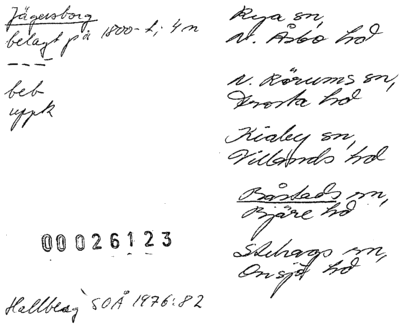 Jägersborg
belagt på 1800-t; 4 n
beb
uppk
Rya sn,
N. Åsbo hd
N. Rörums sn,
Frosta hd
Kiaby sn,
Villands hd
Båstads sn,
Bjäre hd
Stehags sn,
Onsjö hd
00026123
Hallberg SOÅ 1976:82